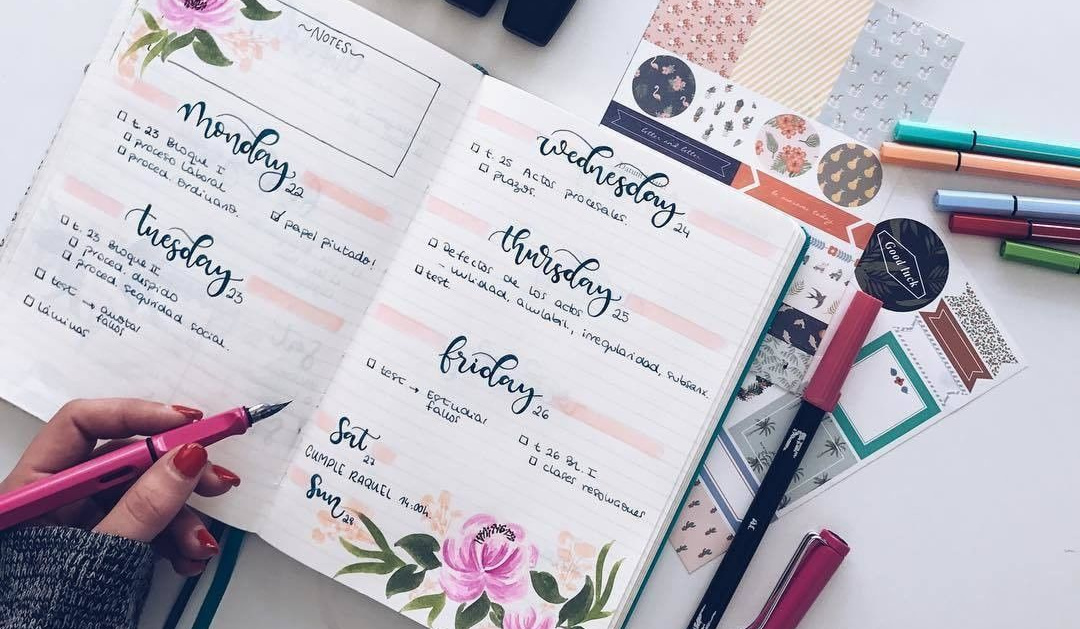 ~NOTES~
Monday 22
t. 23 Bloque I
proceso laboral
proced. ordinario.
papel pintado!
Tuesday 23
t. 23 Bloque II
proced. despido
proced. seguridad social.
test → anotar
fallos
láminas
Wednesday 24
t. 25 Actos procesales.
plazos.
thursday 25
Defectos de los actos
- nulidad, anulabil, irregularidad, subsan.
test
friday 26
test → Estudiar
fallos
t 26 Bl. I
clases resoluciones
Sat 27
CUMPLE RAQUEL 14:00h
Sun 28
Good luck